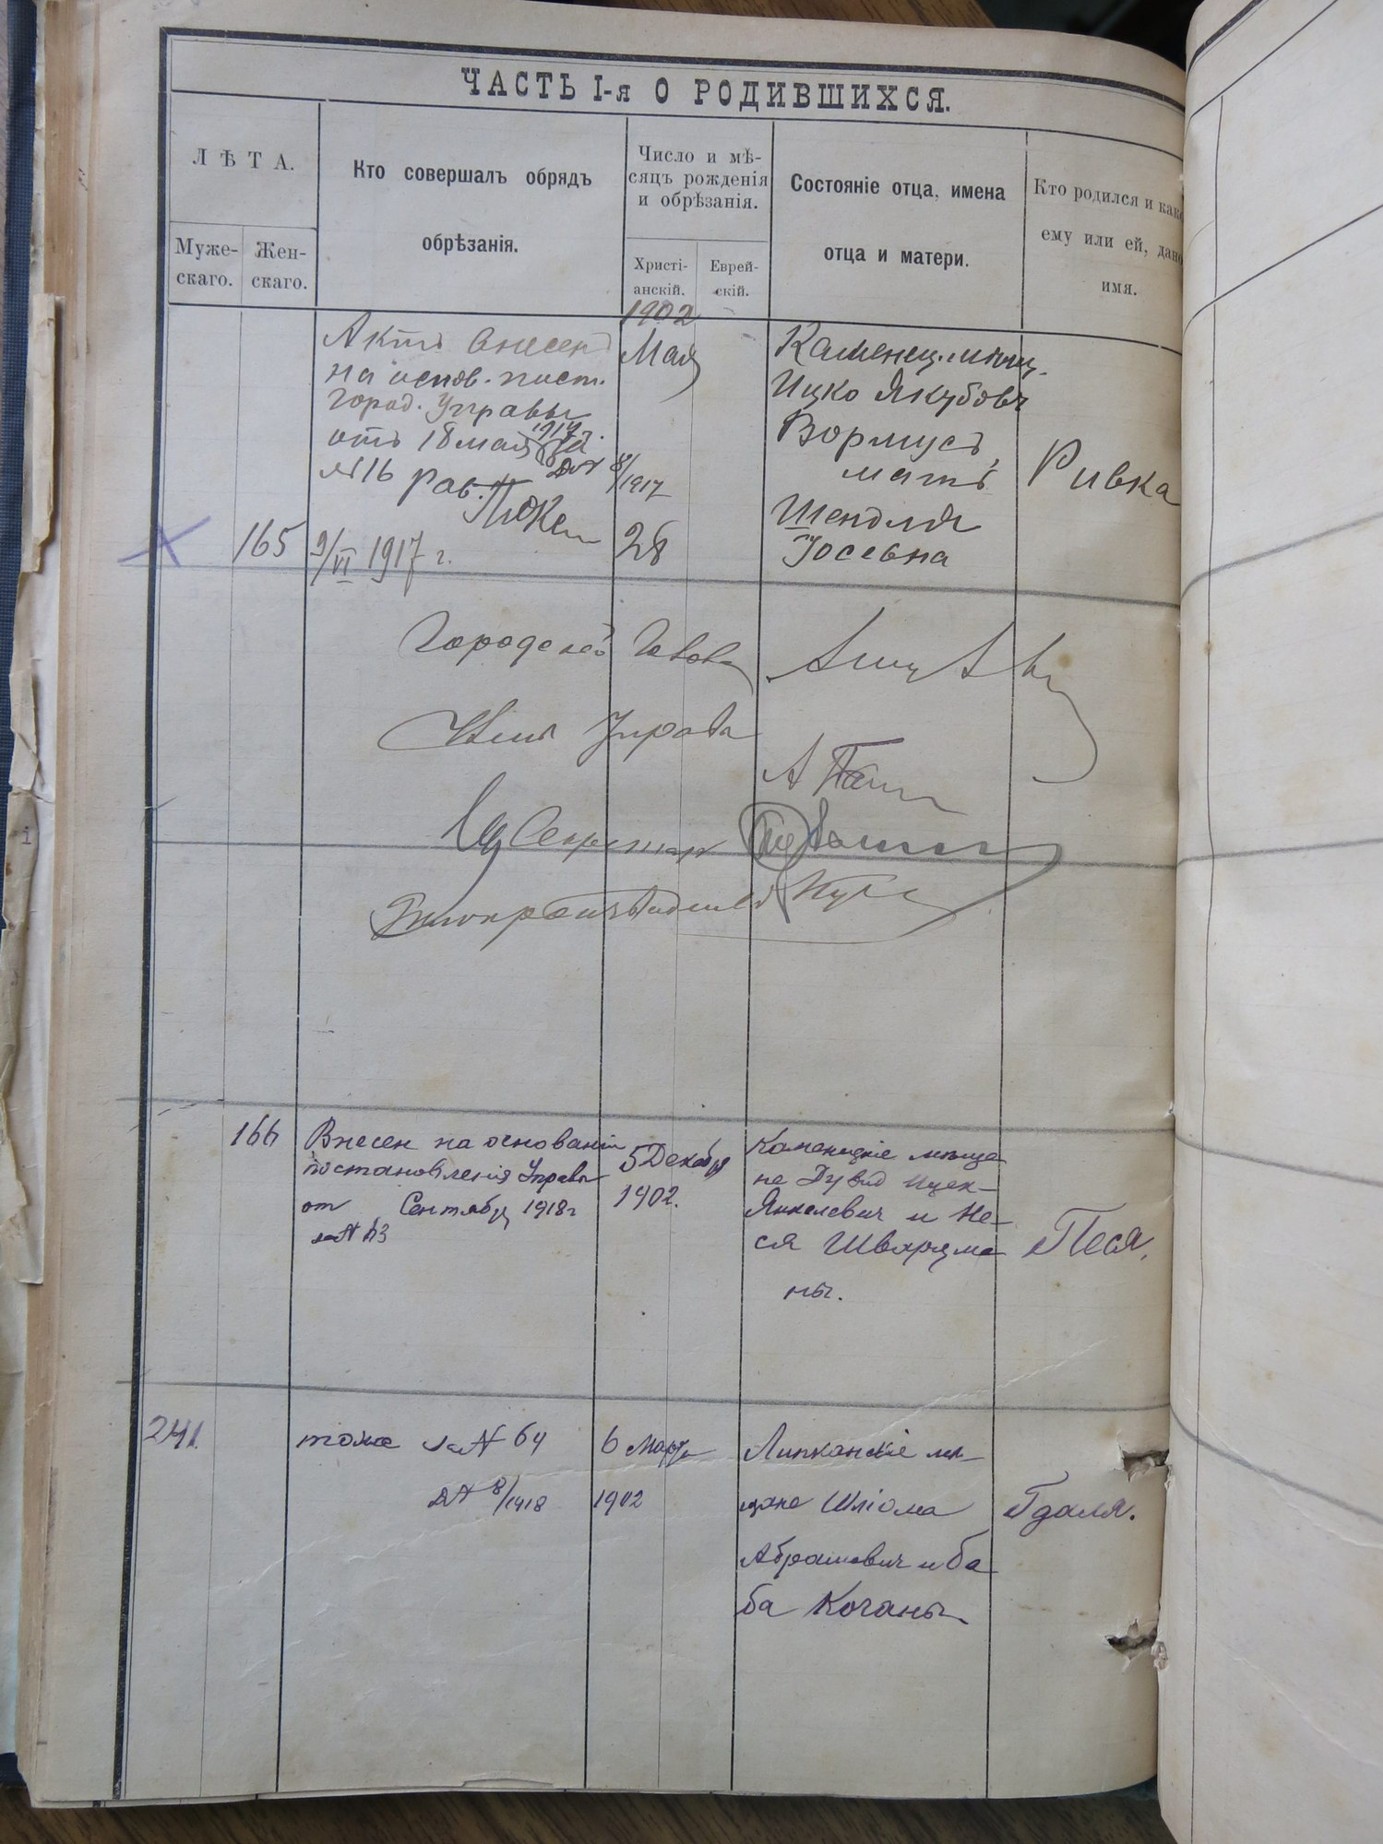 ЧАСТЬ I-я О РОДИВШИХСЯ.
ЛѢТА.
Муже-
скаго.
Жен-
скаго.
Кто совершалъ обрядъ
обрѣзанія.
Число и мѣ-
сяцъ рожденія
и обрѣзанія.
Христі-
анскій.
Еврей-
скій.
Состояніе отца, имена
отца и матери.
Кто родился и как
ему или ей, дано
имя.
165
Актъ внесен
на основ. пост.
Город. Управы
отъ 18 мая 1917 г.
№16 Рав.
9/VI 1917 г.
1902
Мая
8/1917
28
Каменец. мѣщ.
Ицко Якубовъ
Вормусъ,
мать
Шендля
Іосевна
Ривка
Городской Голова
Члены Управы
А
Секретар
166
Внесен на основаніи
постановленія Управы
от Сентября 1918 г
за №63
5 Декабря
1902.
Каменецкіе мѣща-
не Дувид Ицек-
Янкелевич и Не-
ся Шварцма-
ны.
Песя.
241.
тоже за № 64
8/1918
6 Марта
1902
Липканскіе мѣ-
щане Шліома
Абрамович и Ба-
ба Коганы
Гдаля.